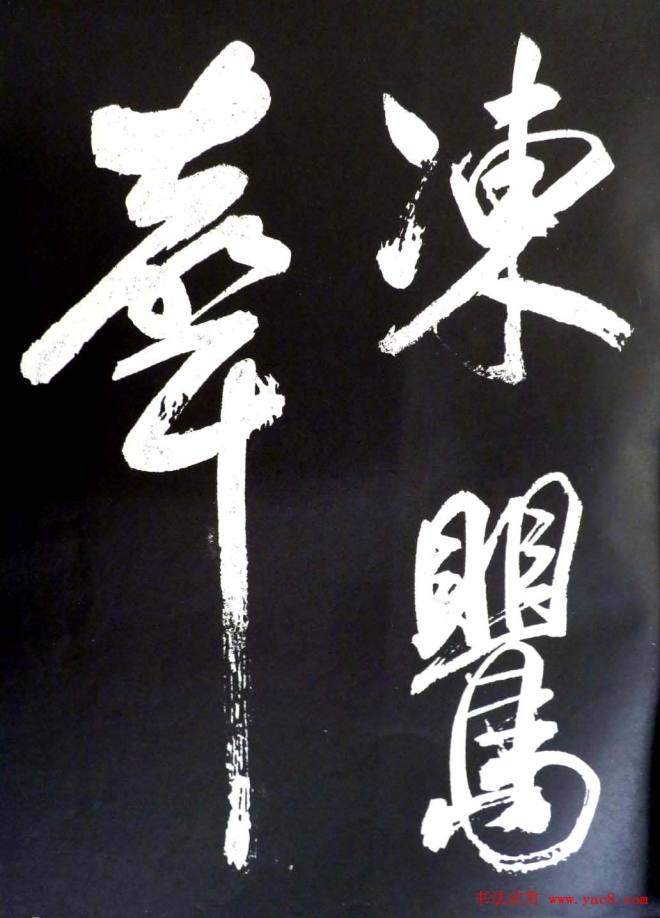 凍
鸎
书法欣赏 www.yac8.com